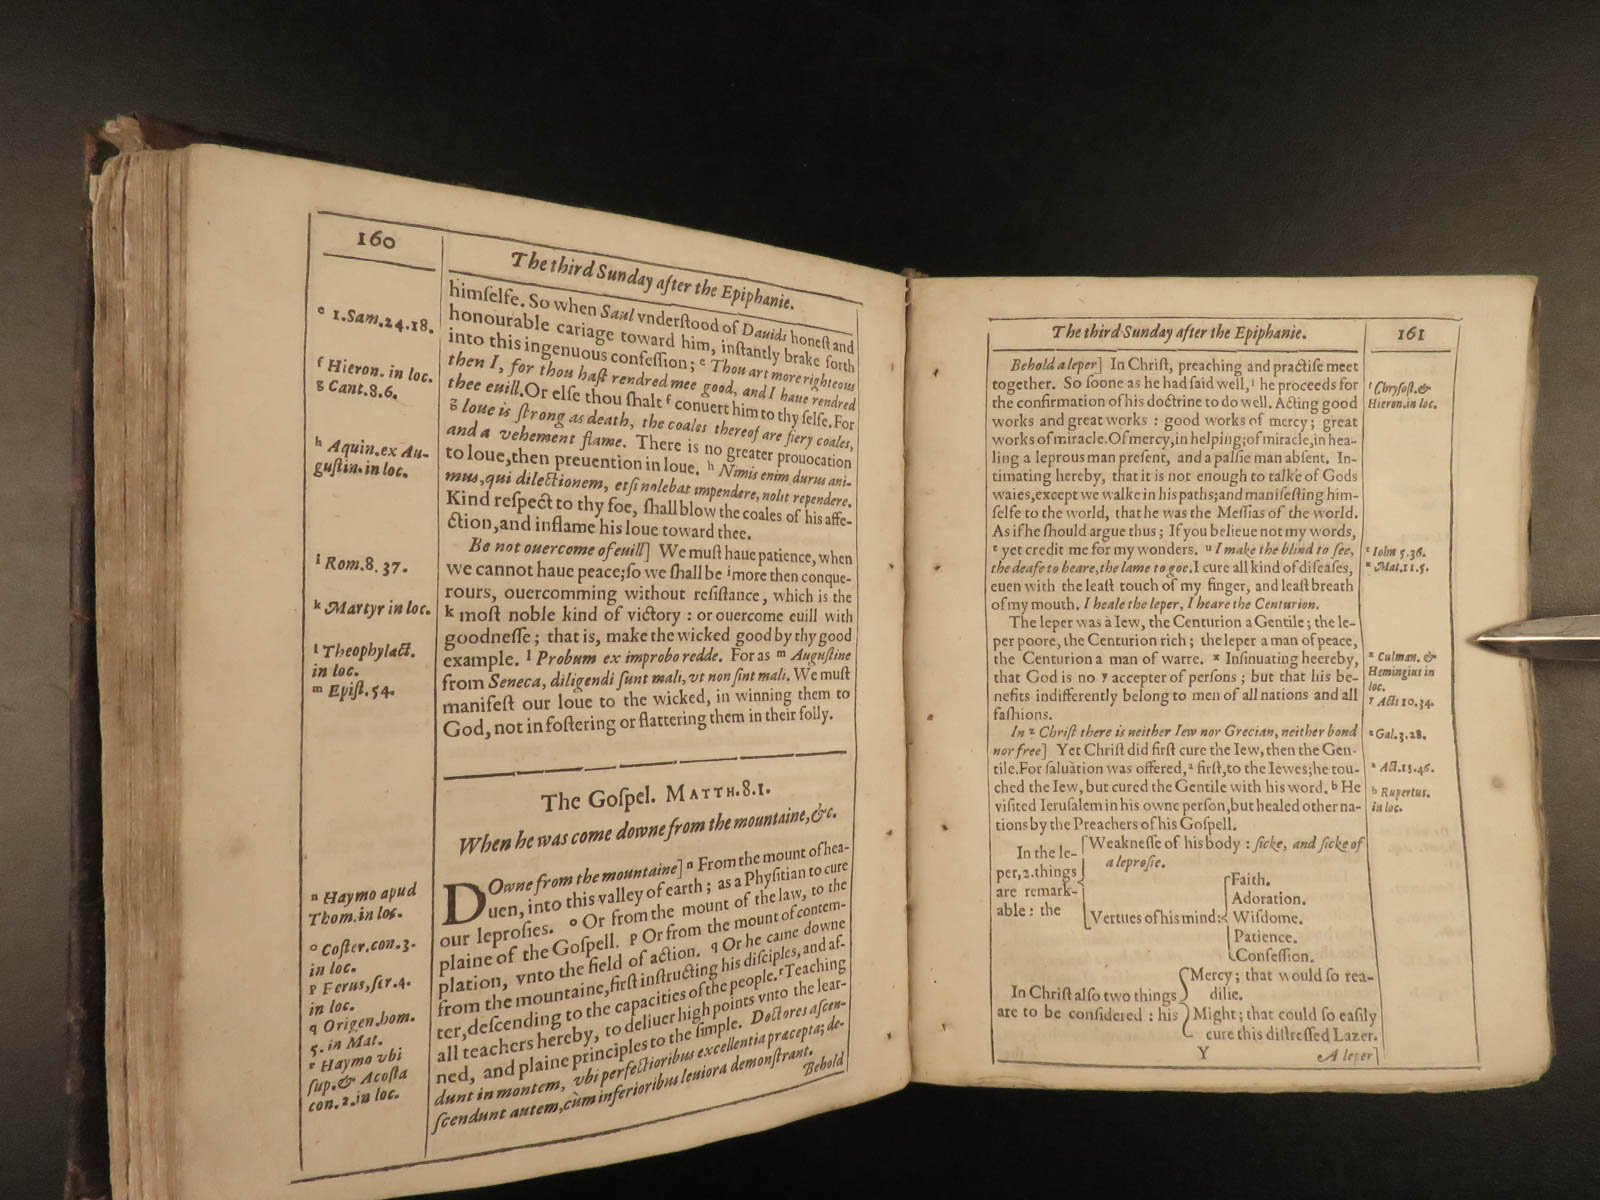 160
The third Sunday after the Epiphanie.
e 1.Sam.24.18.
f Hieron. in loc.
g Cant.8.6.
h Aquin.ex Au-
guſtin.in loc.
i Rom.8.37.
k Martyr in loc.
l Theophylact.
in loc.
m Epiſt.54.
n Haymo apud
Thom.in loc.
o Coſter.con.3.
in loc.
p Ferus,ſer.4.
in loc.
q Origen.hom.
5.in Mat.
r Haymo vbi
ſup.& Acoſta
con.2.in loc.
himſelfe. So when Saul vnderſtood of Dauids honeſt and
honourable cariage toward him, inſtantly brake forth
into this ingenuous confeſſion; e Thou art more righteous
then I, for thou haſt rendred mee good, and I haue rendred
thee euill. Or elſe thou ſhalt f conuert him to thy ſelfe. For
g loue is ſtrong as death, the coales thereof are fiery coales,
and a vehement flame. There is no greater prouocation
to loue,then preuention in loue. h Nimis enim durus ani-
mus,qui dilectionem, etſi nolebat impendere, nolit rependere.
Kind reſpect to thy foe, ſhall blow the coales of his affe-
ction,and inflame his loue toward thee.
Be not ouercome of euill] We muſt haue patience, when
we cannot haue peace;ſo we ſhall be i more then conque-
rours, ouercomming without reſiſtance, which is the
k moſt noble kind of victory : or ouercome euill with
goodneſſe; that is, make the wicked good by thy good
example. l Probum ex improbo redde. For as m Auguſtine
from Seneca, diligendi ſunt mali, vt non ſint mali. We muſt
manifeſt our loue to the wicked, in winning them to
God, not in foſtering or flattering them in their folly.
The Goſpel. MATTH.8.1.
When he was come downe from the mountaine,&c.
DOwne from the mountaine] n From the mount of hea-
uen, into this valley of earth; as a Phyſitian to cure
our leproſies. o Or from the mount of the law, to the
plaine of the Goſpell. p Or from the mount of contem-
plation, vnto the field of action. q Or he came downe
from the mountaine,firſt inſtructing his diſciples, and af-
ter,deſcending to the capacities of the people. r Teaching
all teachers hereby, to deliuer high points vnto the lear-
ned, and plaine principles to the ſimple. Doctores aſcen-
dunt in montem, vbi perfectioribus excellentia præcepta; de-
ſcendunt autem,cùm inferioribus leuiora demonſtrant.
Behold
The third Sunday after the Epiphanie.
161
Behold a leper] In Chriſt, preaching and practiſe meet
together. So ſoone as he had ſaid well, ſ he proceeds for
the confirmation of his doctrine to do well. Acting good
works and great works : good works of mercy; great
works of miracle.Of mercy,in helping;of miracle,in hea-
ling a leprous man preſent, and a palſie man abſent. In-
timating hereby, that it is not enough to talke of Gods
waies,except we walke in his paths;and manifeſting him-
ſelfe to the world, that he was the Meſſias of the world.
As if he ſhould argue thus; If you belieue not my words,
t yet credit me for my wonders. u I make the blind to ſee,
the deafe to heare,the lame to goe. I cure all kind of diſeaſes,
euen with the leaſt touch of my finger, and leaſt breath
of my mouth. I heale the leper, I heare the Centurion.
The leper was a Iew, the Centurion a Gentile; the le-
per poore, the Centurion rich; the leper a man of peace,
the Centurion a man of warre. x Inſinuating heereby,
that God is no y accepter of perſons; but that his be-
nefits indifferently belong to men of all nations and all
faſhions.
In z Chriſt there is neither Iew nor Grecian, neither bond
nor free] Yet Chriſt did firſt cure the Iew, then the Gen-
tile.For ſaluation was offered, a firſt,to the Iewes;he tou-
ched the Iew, but cured the Gentile with his word. b He
viſited Ieruſalem in his owne perſon,but healed other na-
tions by the Preachers of his Goſpell.
In the le-
per,2.things
are remark-
able : the
Weakneſſe of his body : ſicke, and ſicke of
a leproſie.
Vertues of his mind:
Faith.
Adoration.
Wiſdome.
Patience.
Confeſſion.
In Chriſt alſo two things
are to be conſidered : his
Mercy; that would ſo rea-
dilie.
Might; that could ſo eaſily
cure this diſtreſſed Lazer.
Y
A leper]
ſ Chryſoſt.&
Hieron.in loc.
t Iohn 5.36.
u Mat.11.5.
x Culman. &
Hemingius in
loc.
y Acts 10.34.
z Gal.3.28.
a Act.13.46.
b Rupertus.
in loc.